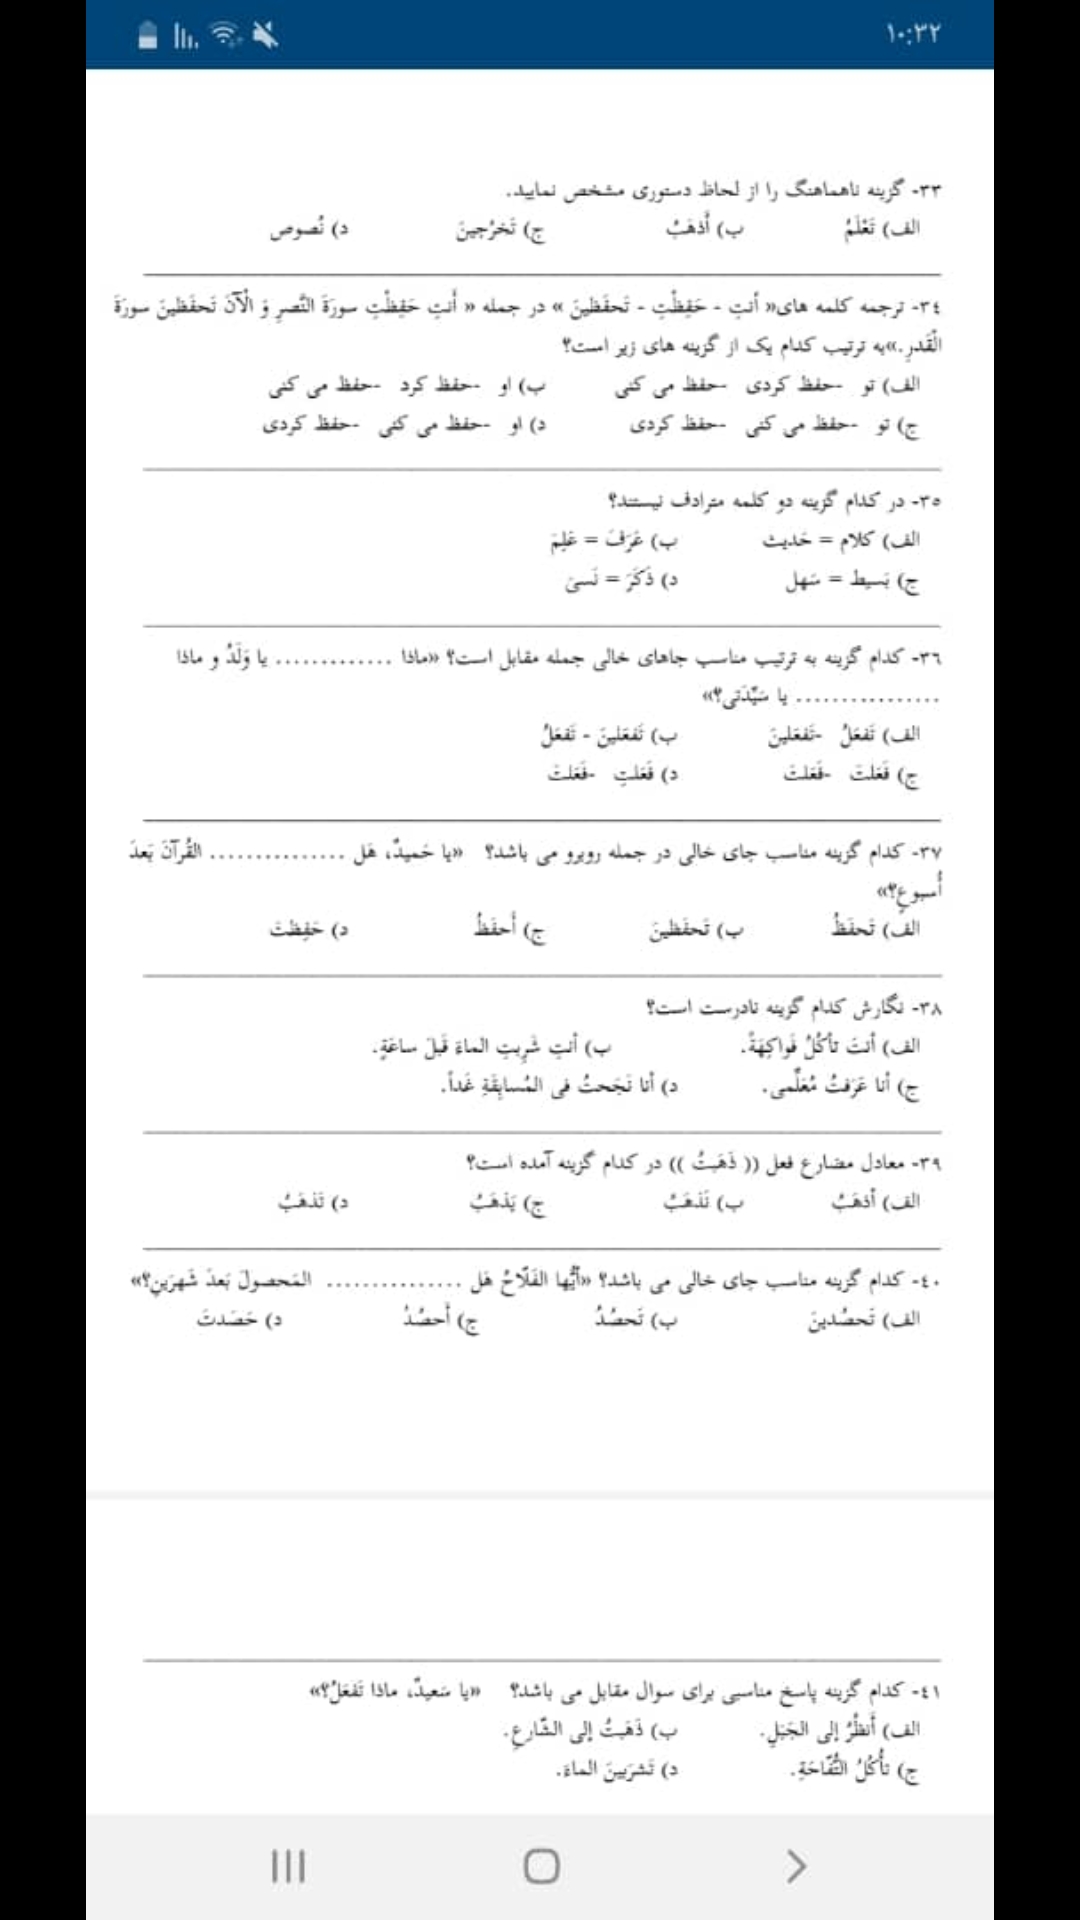 ١٠:٣٢
٣٣- گزینه ناهماهنگ را از لحاظ دستوری مشخص نمایید.
الف) تَعْلَمُ ب) أَذهَبُ ج) تَخرُجينَ د) نُصوص
٣٤- ترجمه کلمه های« أنتِ - حَفِظْتِ - تَحفَظينَ » در جمله « أَنتِ حَفِظْتِ سورَةَ النَّصرِ وَ الْآنَ تَحفَظينَ سورَةَ
الْقَدرِ.»به ترتیب کدام یک از گزینه های زیر است؟
الف) تو -حفظ کردی -حفظ می کنی ب) او -حفظ کرد -حفظ می کنی
ج) تو -حفظ می کنی -حفظ کردی د) او -حفظ می کنی -حفظ کردی
٣٥- در کدام گزینه دو کلمه مترادف نیستند؟
الف) کلام = حَدیث ب) عَرَفَ = عَلِمَ
ج) بَسیط = سَهل د) ذَکَرَ = نَسیَ
٣٦- کدام گزینه به ترتیب مناسب جاهای خالی جمله مقابل است؟ «ماذا ............. یا وَلَدُ و ماذا
................ یا سَیِّدَتی؟»
الف) تَفعَلُ -تَفعَلینَ ب) تَفعَلینَ - تَفعَلُ
ج) فَعَلتَ -فَعَلتَ د) فَعَلتِ -فَعَلتَ
٣٧- کدام گزینه مناسب جای خالی در جمله روبرو می باشد؟ «یا حَمیدُ، هَل ............... القُرآنَ بَعدَ
أُسبوعٍ؟»
الف) تَحفَظُ ب) تَحفَظینَ ج) أَحفَظُ د) حَفِظتَ
٣٨- نگارش کدام گزینه نادرست است؟
الف) أنتَ تأکُلُ فَواکِهَةً. ب) أنتِ شَرِبتِ الماءَ قَبلَ ساعَةٍ.
ج) أنا عَرَفتُ مُعَلِّمی. د) أنا نَجَحتُ فی المُسابِقَةِ غَداً.
٣٩- معادل مضارع فعل (( ذَهَبتُ )) در کدام گزینه آمده است؟
الف) أذهَبُ ب) نَذهَبُ ج) یَذهَبُ د) تَذهَبُ
٤٠- کدام گزینه مناسب جای خالی می باشد؟ «أیُّها الفَلّاحُ هَل ............... المَحصولَ بَعدَ شَهرَینِ؟»
الف) تَحصُدینَ ب) تَحصُدُ ج) أَحصُدُ د) حَصَدتَ
٤١- کدام گزینه پاسخ مناسبی برای سوال مقابل می باشد؟ «یا سَعیدُ، ماذا تَفعَلُ؟»
الف) أَنظُرُ إلی الجَبَلِ. ب) ذَهَبتُ إلی الشّارِعِ.
ج) تأکُلُ التُّفّاحَةِ. د) تَشرَبینَ الماءَ.